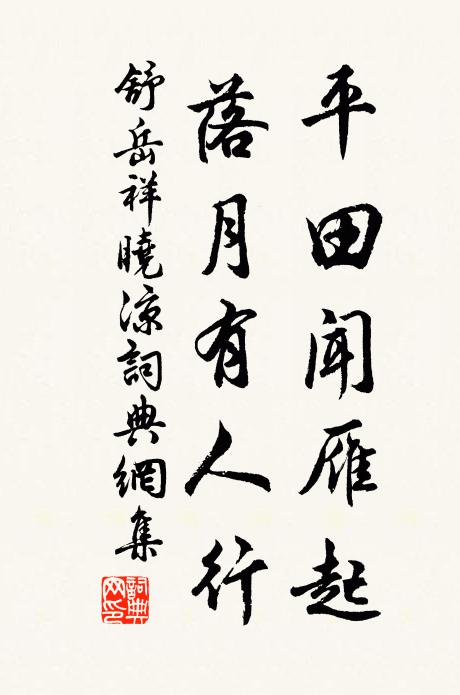 平田聞雁起
落月有人行
舒岳祥曉涼詞典網集
詞典
网印